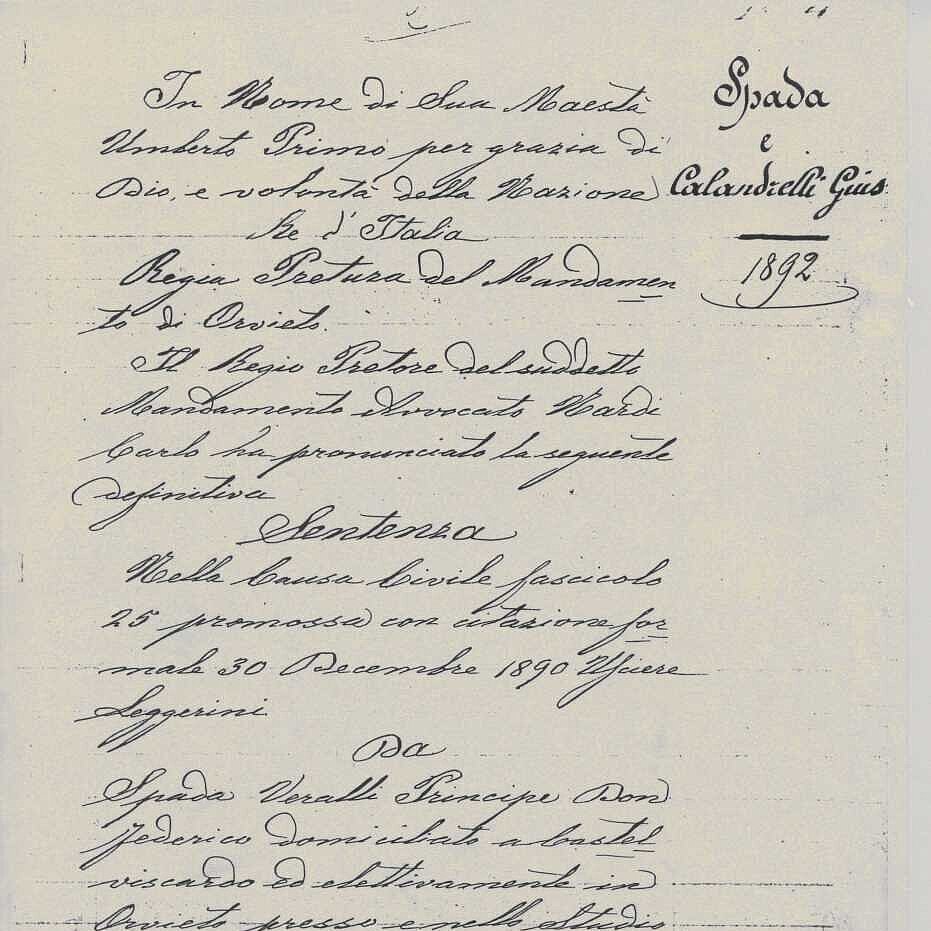 In Nome di Sua Maestà
Umberto Primo per grazia di
Dio, e volontà della Nazione
Re d'Italia
Regia Pretura del Mandamen
to di Orvieto.
Il Regio Pretore del suddetto
Mandamento Avvocato Nardi
Carlo ha pronunciato la seguente
definitiva
Sentenza
Nella Causa Civile fascicolo
25 promossa con citazione for
male 30 Decembre 1890 Usciere
Leggerini
Da
Spada Veralli Principe Don
Federico domiciliato a Castel
viscardo ed elettivamente in
Orvieto presso e nello Studio
Spada
e
Calandrelli Gius
1892